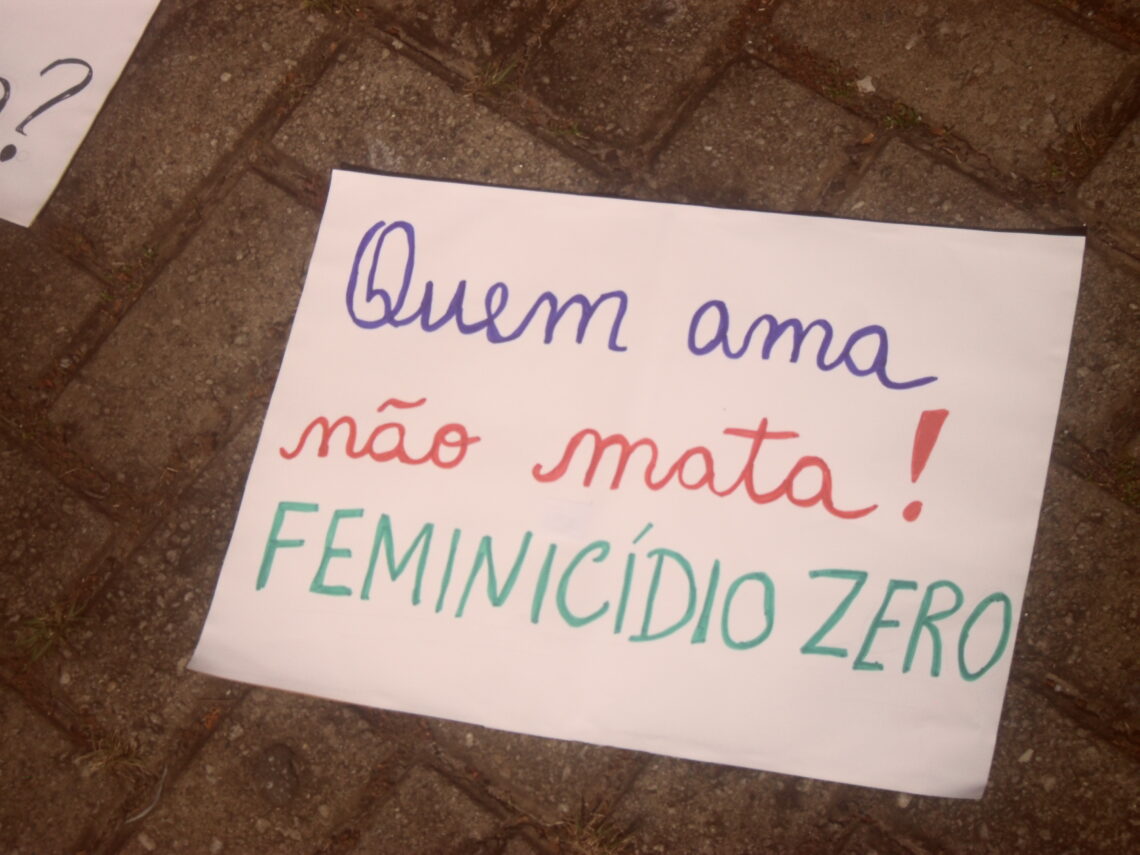 ?
Quem ama
não mata!
FEMINICÍDIO ZERO